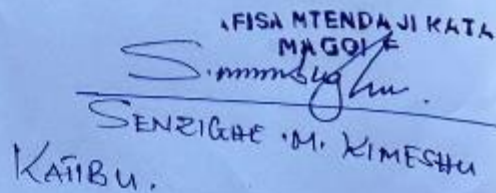 AFISA MTENDAJI KATA
MAGOLE
SENZIGHE .M. KIMESHU
KATIBU.